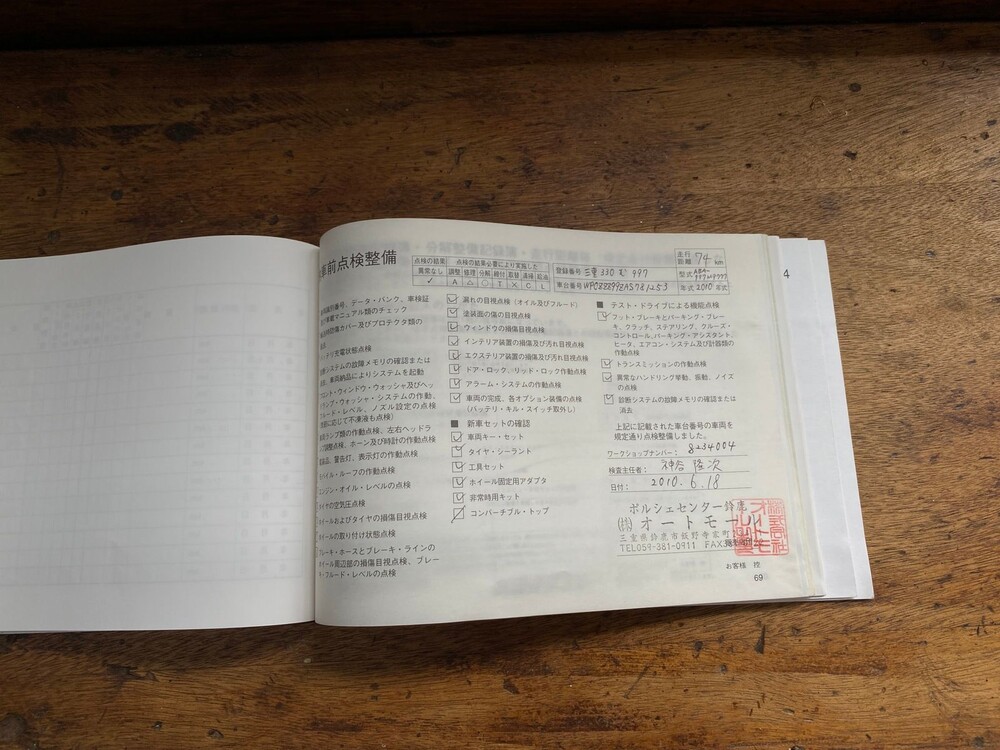 車前点検整備
点検の結果 点検の結果必要により実施した
異常なし 調整 修理 分解 締付 取替 清掃 給油
✓ A △ ○ T X C L
登録番号 三重 330 997
車台番号
走行距離 74 km
型式 ABA-
年式 2010 年式
4
番号、データ・バンク、車検証
マニュアル類のチェック
防傷カバー及びプロテクタ類の
充電状態点検
システムの故障メモリの確認または
車両納品によりシステムを起動
フロント・ウィンドウ・ウォッシャ及びヘッ
ランプ・ウォッシャ・システムの作動、
フルード・レベル、ノズル設定の点検
に応じて不凍液も点検)
ランプ類の作動点検、左右ヘッドラ
調整点検、ホーン及び時計の作動点検
警告灯、表示灯の作動点検
モバイル・ルーフの作動点検
エンジン・オイル・レベルの点検
タイヤの空気圧点検
ホイールおよびタイヤの損傷目視点検
ホイールの取り付け状態点検
ブレーキ・ホースとブレーキ・ラインの
ホイール周辺部の損傷目視点検、ブレー
キ・フルード・レベルの点検
漏れの目視点検（オイル及びフルード）
塗装面の傷の目視点検
ウィンドウの損傷目視点検
インテリア装置の損傷及び汚れ目視点検
エクステリア装置の損傷及び汚れ目視点検
ドア・ロック、リッド・ロック作動点検
アラーム・システムの作動点検
車両の完成、各オプション装備の点検
（バッテリ・キル・スイッチ取外し）
■ 新車セットの確認
車両キー・セット
タイヤ・シーラント
工具セット
ホイール固定用アダプタ
非常時用キット
コンバーチブル・トップ
■ テスト・ドライブによる機能点検
フット・ブレーキとパーキング・ブレー
キ、クラッチ、ステアリング、クルーズ・
コントロール、パーキング・アシスタント、
ヒータ、エアコン・システム及び計器類の
作動点検
トランスミッションの作動点検
異常なハンドリング挙動、振動、ノイズ
の点検
診断システムの故障メモリの確認または
消去
上記に記載された車台番号の車両を
規定通り点検整備しました。
ワークショップナンバー： 8234004
検査主任者： 神谷 隆次
日付： 2010.6.18
ポルシェセンター鈴鹿
(株) オートモール
三重県鈴鹿市飯野寺家町
TEL059-381-0911 FAX
株式会社オートモール
お客様 控
69